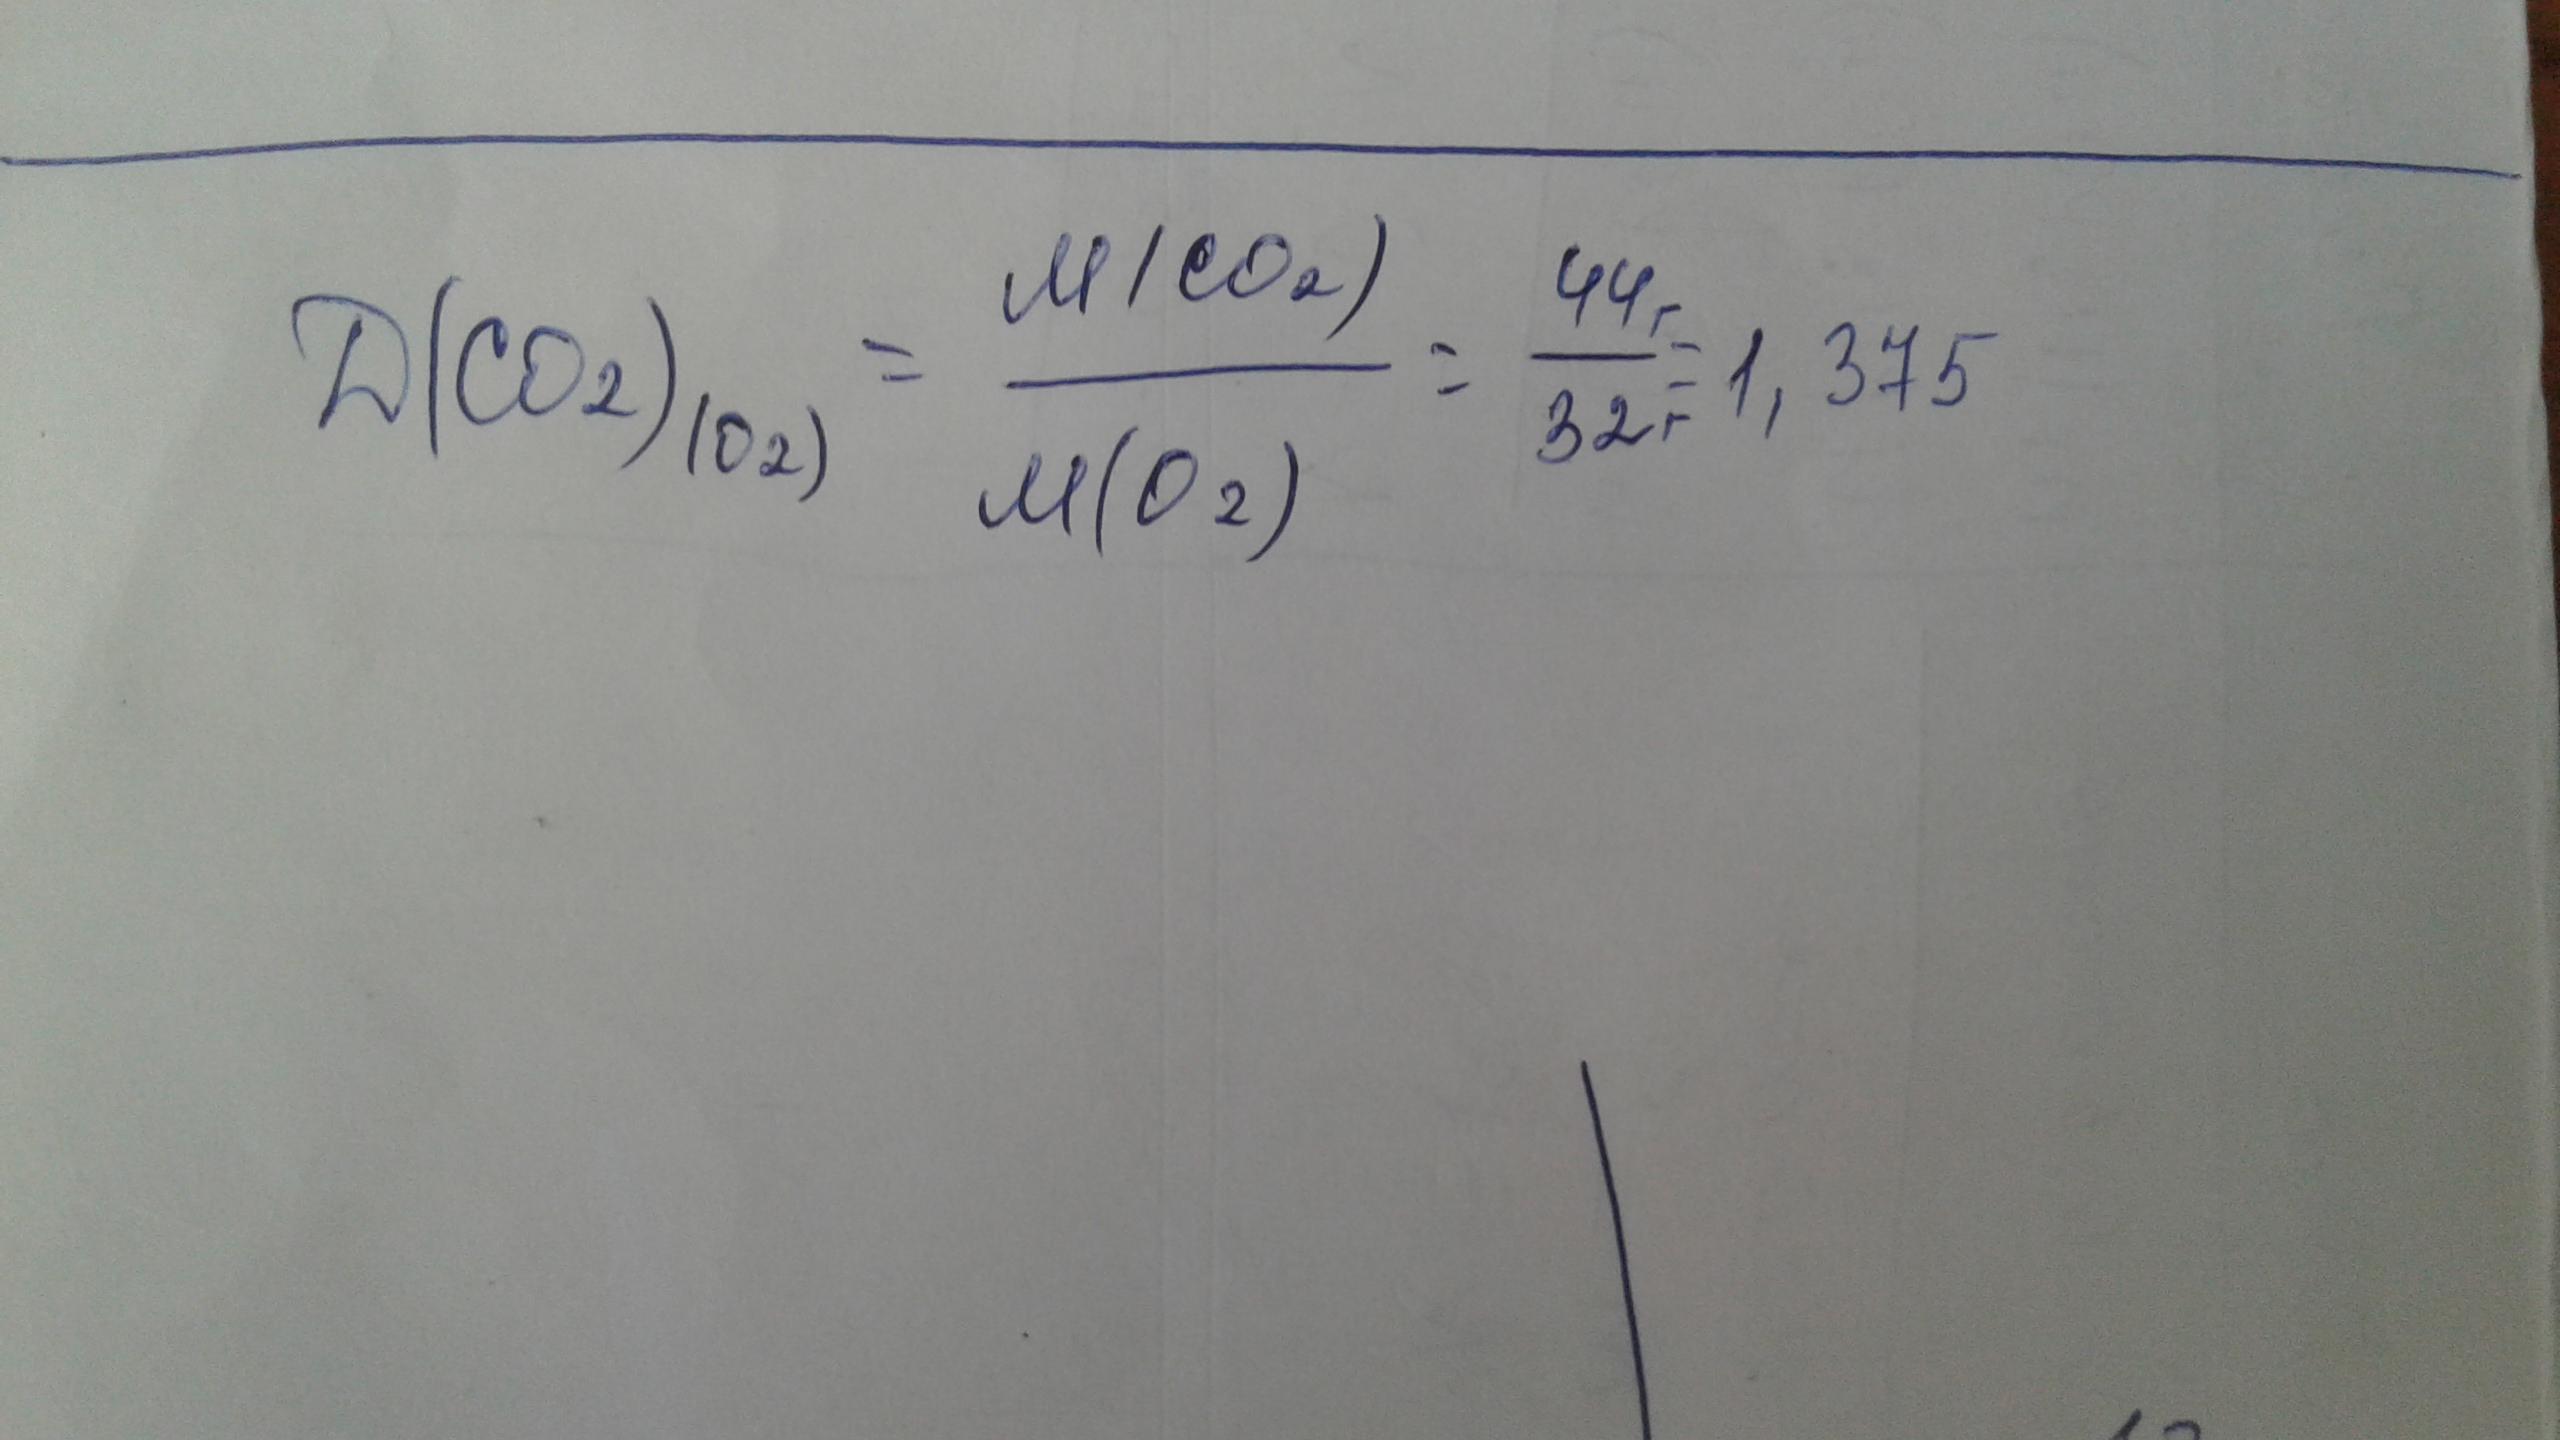 D(CO₂)₍O₂₎ = M(CO₂) / M(O₂) = 44г / 32г = 1,375